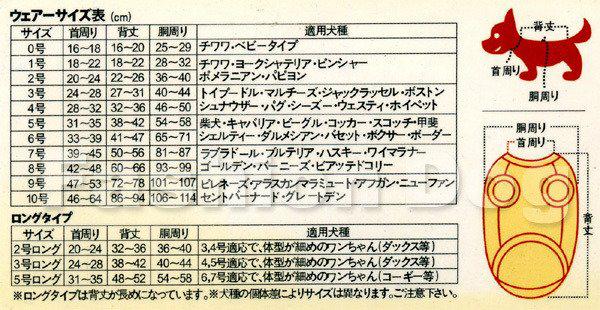 ウェアーサイズ表 (cm)
サイズ 首周り 背丈 胴周り 適用犬種
0号 16〜18 16〜20 25〜29 チワワ・ベビータイプ
1号 18〜22 18〜22 28〜32 チワワ・ヨークシャテリア・ピンシャー
2号 20〜24 22〜26 36〜40 ポメラニアン・パピヨン
3号 24〜28 27〜31 40〜44 トイプードル・マルチーズ・ジャックラッセル・ボストン
4号 28〜32 32〜36 46〜50 シュナウザー・パグ・シーズー・ウェスティ・ホイペット
5号 31〜35 38〜42 54〜58 柴犬・キャバリア・ビーグル・コッカー・スコッチ・甲斐
6号 33〜39 41〜47 65〜71 シェルティー・ダルメシアン・バセット・ボクサー・ボーダー
7号 39〜45 50〜56 81〜87 ラブラドール・ブルテリア・ハスキー・ワイマラナー
8号 42〜48 60〜66 93〜99 ゴールデン・バーニーズ・ビアッテドコリー
9号 47〜53 72〜78 101〜107 ピレネーズ・アラスカンマラミュート・アフガン・ニューファン
10号 46〜64 86〜94 106〜114 セントバーナード・グレートデン
ロングタイプ
サイズ 首周り 背丈 胴周り 適用犬種
2号ロング 20〜24 32〜36 36〜40 3,4号適応で、体型が細めのワンちゃん(ダックス等)
3号ロング 24〜28 38〜42 40〜44 4,5号適応で、体型が細めのワンちゃん(ダックス等)
5号ロング 31〜35 48〜52 54〜58 6,7号適応で、体型が細めのワンちゃん(コーギー等)
※ロングタイプは背丈が長めになっています。※犬種の個体差によりサイズは異なります。ご注意下さい。
背丈
首周り
胴周り
胴周り
首周り
背丈